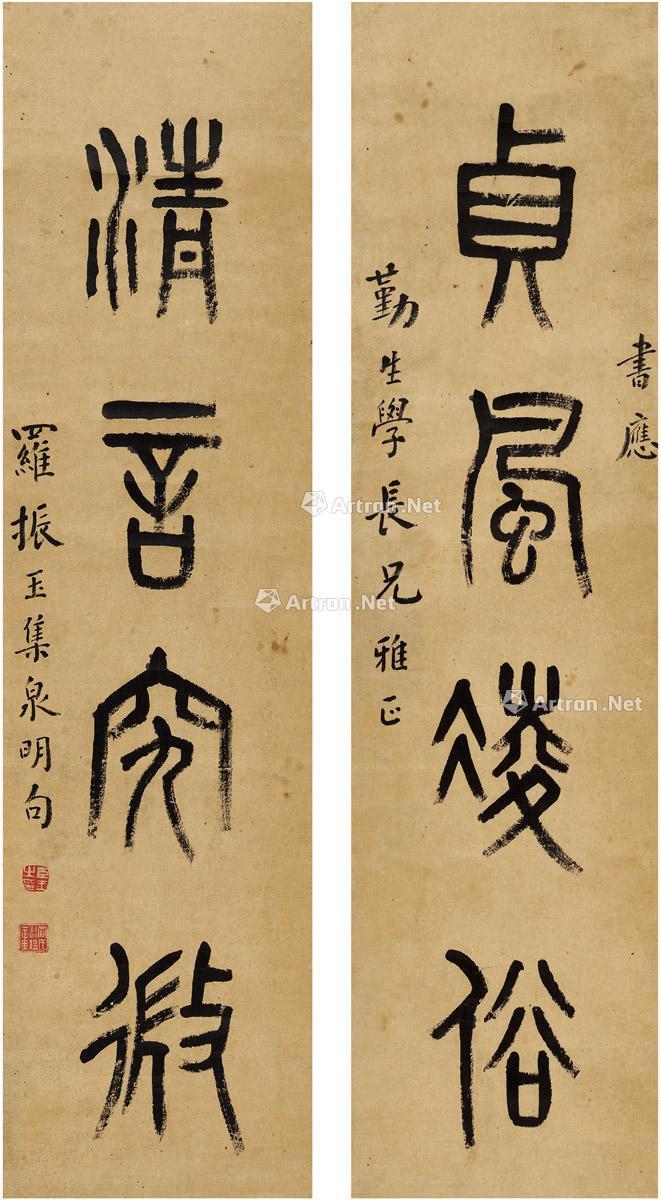 貞風凌俗
書應
勤生學長兄雅正
清言究微
羅振玉集泉明句
Artron.Net
Artron.Net
Artron.Net